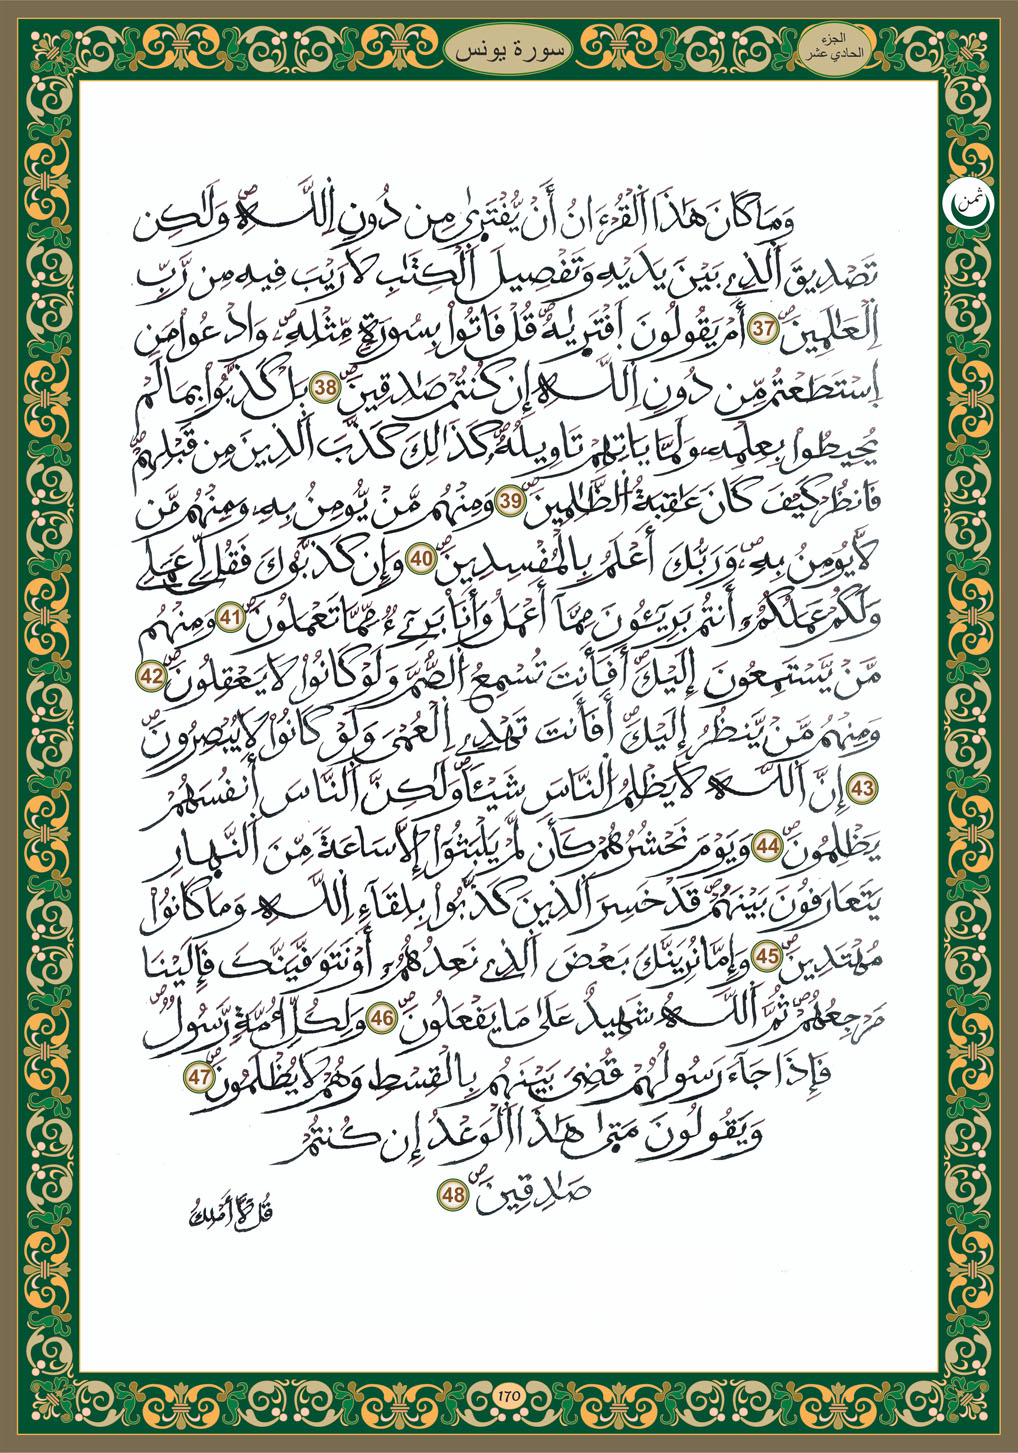 الجزء
الحادي عشر
سورة يونس
ثمن
وَمَا كَانَ هَٰذَا اَلْقُرْءَانُ أَنْ يُّفْتَر۪يٰ مِن دُونِ اِ۬للَّهِۖ وَلَٰكِن
تَصْدِيقَ اَ۬لذِے بَيْنَ يَدَيْهِ وَتَفْصِيلَ اَ۬لْكِتَٰبِ لَا رَيْبَ فِيهِ مِن رَّبِّ
اِ۬لْعَٰلَمِينَۖ 37 أَمْ يَقُولُونَ اَ۪فْتَر۪يٰهُۖ قُلْ فَاتُواْ بِسُورَةٖ مِّثْلِهِۦ وَادْعُواْ مَنِ
اِ۪سْتَطَعْتُم مِّن دُونِ اِ۬للَّهِ إِن كُنتُمْ صَٰدِقِينَۖ 38 بَلْ كَذَّبُواْ بِمَا لَمْ
يُحِيطُواْ بِعِلْمِهِۦ وَلَمَّا يَاتِهِمْ تَاوِيلُهُۥۖ كَذَٰلِكَ كَذَّبَ اَ۬لذِينَ مِن قَبْلِهِمْۖ
فَانظُرْ كَيْفَ كَانَ عَٰقِبَةُ اُ۬لظَّٰلِمِينَۖ 39 وَمِنْهُم مَّنْ يُّومِنُ بِهِۦ وَمِنْهُم مَّن
لَّا يُومِنُ بِهِۦۖ وَرَبُّكَ أَعْلَمُ بِالْمُفْسِدِينَۖ 40 وَإِن كَذَّبُوكَ فَقُل لِّے عَمَلِے
وَلَكُمْ عَمَلُكُمُۥٓ أَنتُم بَرِيٓـُٔونَ مِمَّآ أَعْمَلُ وَأَنَا بَرِےٓءٞ مِّمَّا تَعْمَلُونَۖ 41 وَمِنْهُم
مَّنْ يَّسْتَمِعُونَ إِلَيْكَۖ أَفَأَنتَ تُسْمِعُ اُ۬لصُّمَّ وَلَوْ كَانُواْ لَا يَعْقِلُونَۖ 42
وَمِنْهُم مَّنْ يَّنظُرُ إِلَيْكَۖ أَفَأَنتَ تَهْدِے اِ۬لْعُمْيَ وَلَوْ كَانُواْ لَا يُبْصِرُونَۖ
43 إِنَّ اَ۬للَّهَ لَا يَظْلِمُ اُ۬لنَّاسَ شَيْـٔاٗۖ وَلَٰكِنَّ اَ۬لنَّاسَ أَنفُسَهُمْ
يَظْلِمُونَۖ 44 وَيَوْمَ نَحْشُرُهُمْ كَأَن لَّمْ يَلْبَثُوٓاْ إِلَّا سَاعَةٗ مِّنَ اَ۬لنَّه۪ارِ
يَتَعَارَفُونَ بَيْنَهُمْۖ قَدْ خَسِرَ اَ۬لذِينَ كَذَّبُواْ بِلِقَآءِ اِ۬للَّهِ وَمَا كَانُواْ
مُهْتَدِينَۖ 45 وَإِمَّا نُرِيَنَّكَ بَعْضَ اَ۬لذِے نَعِدُهُمُۥٓ أَوْ نَتَوَفَّيَنَّكَ فَإِلَيْنَا
مَرْجِعُهُمْۖ ثُمَّ اَ۬للَّهُ شَهِيدٌ عَلَىٰ مَا يَفْعَلُونَۖ 46 وَلِكُلِّ أُمَّةٖ رَّسُولٞۖ
فَإِذَا جَآءَ رَسُولُهُمْ قُضِيَ بَيْنَهُم بِالْقِسْطِ وَهُمْ لَا يُظْلَمُونَۖ 47
وَيَقُولُونَ مَت۪يٰ هَٰذَا اَ۬لْوَعْدُ إِن كُنتُمْ
صَٰدِقِينَۖ 48
قُل لَّآ أَمْلِكُ
170